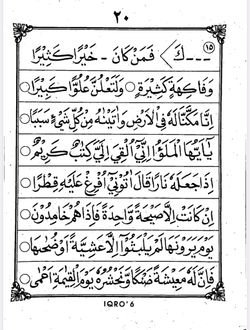 ٢٠
١٥
--- كَ 〉 فَمَنْ كَانَ - خَيْرًا كَثِيْرًا
وَفَاكِهَةٍ كَثِيْرَةٍ ○ وَلَتَعْلُنَّ عُلُوًّا كَبِيْرًا ○
اِنَّا مَكَّنَّا لَهٗ فِى الْاَرْضِ وَاٰتَيْنٰهُ مِنْ كُلِّ شَيْءٍ سَبَبًا ○
يٰٓاَيُّهَا الْمَلَؤُا اِنِّيْٓ اُلْقِيَ اِلَيَّ كِتٰبٌ كَرِيْمٌ ○
اِذَا جَعَلَهٗ نَارًا قَالَ اٰتُوْنِيْٓ اُفْرِغْ عَلَيْهِ قِطْرًا ○
اِنْ كَانَتْ اِلَّا صَيْحَةً وَّاحِدَةً فَاِذَا هُمْ خَامِدُوْنَ ○
يَوْمَ يَرَوْنَهَا لَمْ يَلْبَثُوْٓا اِلَّا عَشِيَّةً اَوْ ضُحٰهَا ○
فَاِنَّ لَهٗ مَعِيْشَةً ضَنْكًا وَّنَحْشُرُهٗ يَوْمَ الْقِيٰمَةِ اَعْمٰى
IQRO' 6